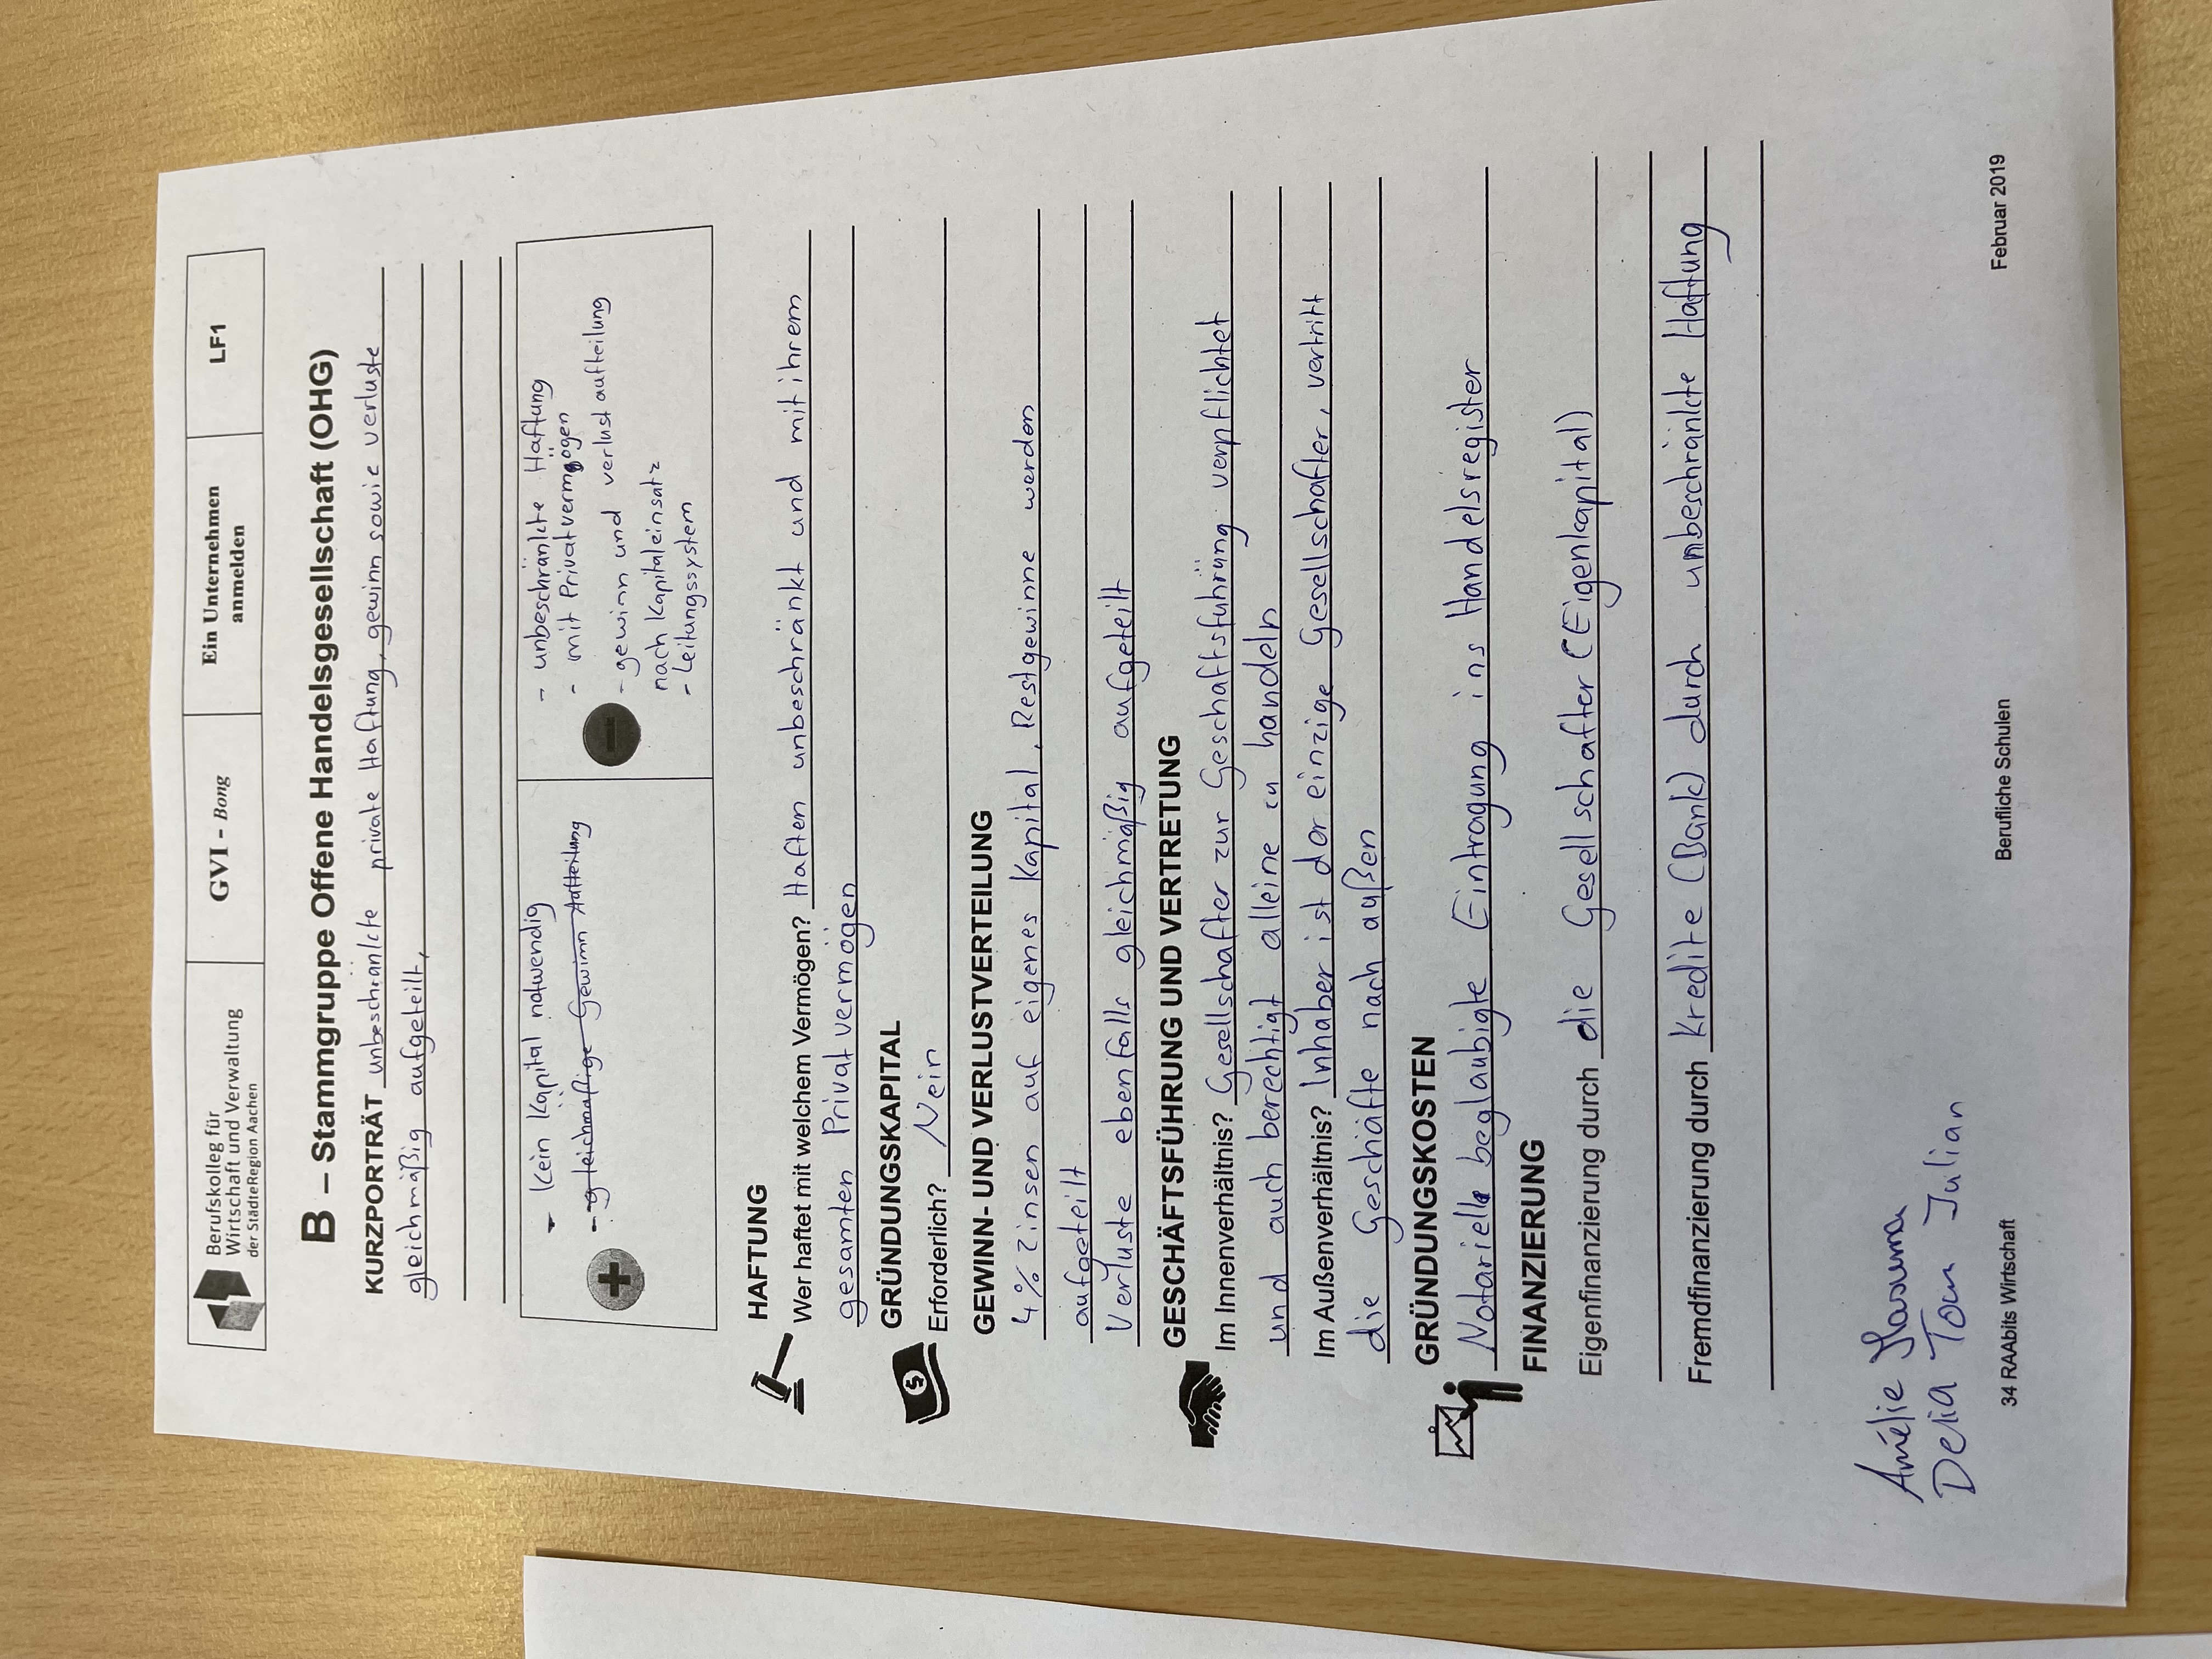 Berufskolleg für
Wirtschaft und Verwaltung
der StädteRegion Aachen
GVI - Bong
Ein Unternehmen
anmelden
LF1
B – Stammgruppe Offene Handelsgesellschaft (OHG)
KURZPORTRÄT unbeschränkte private Haftung, gewinn sowie verluste
gleichmäßig aufgeteilt,
- Kein Kapital notwendig
- gleichmäßige Gewinn Aufteilung
- unbeschränkte Haftung
- mit Privatvermögen
- gewinn und verlust aufteilung
nach Kapitaleinsatz
- Leitungssystem
HAFTUNG
Wer haftet mit welchem Vermögen? Haften unbeschränkt und mit ihrem
gesamten Privatvermögen
GRÜNDUNGSKAPITAL
Erforderlich? Nein
GEWINN- UND VERLUSTVERTEILUNG
4% Zinsen auf eigenes Kapital, Restgewinne werden
aufgeteilt
Verluste ebenfalls gleichmäßig aufgeteilt
GESCHÄFTSFÜHRUNG UND VERTRETUNG
Im Innenverhältnis? Gesellschafter zur Geschäftsführung verpflichtet
und auch berechtigt alleine zu handeln
Im Außenverhältnis? Inhaber ist der einzige Gesellschafter, vertritt
die Geschäfte nach außen
GRÜNDUNGSKOSTEN
Notariell beglaubigte Eintragung ins Handelsregister
FINANZIERUNG
Eigenfinanzierung durch die Gesellschafter (Eigenkapital)
Fremdfinanzierung durch Kredite (Bank) durch unbeschränkte Haftung
Amélie Masuma
Delia Tom Julian
34 RAAbits Wirtschaft
Berufliche Schulen
Februar 2019